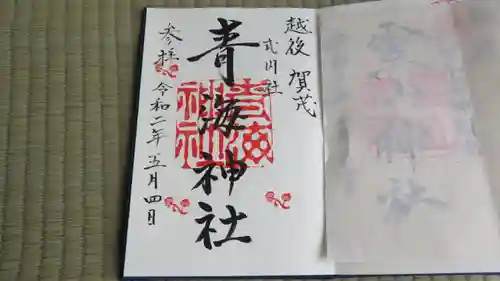 越後 賀茂
式内社
青海神社
青海神社
参拝
令和二年五月四日